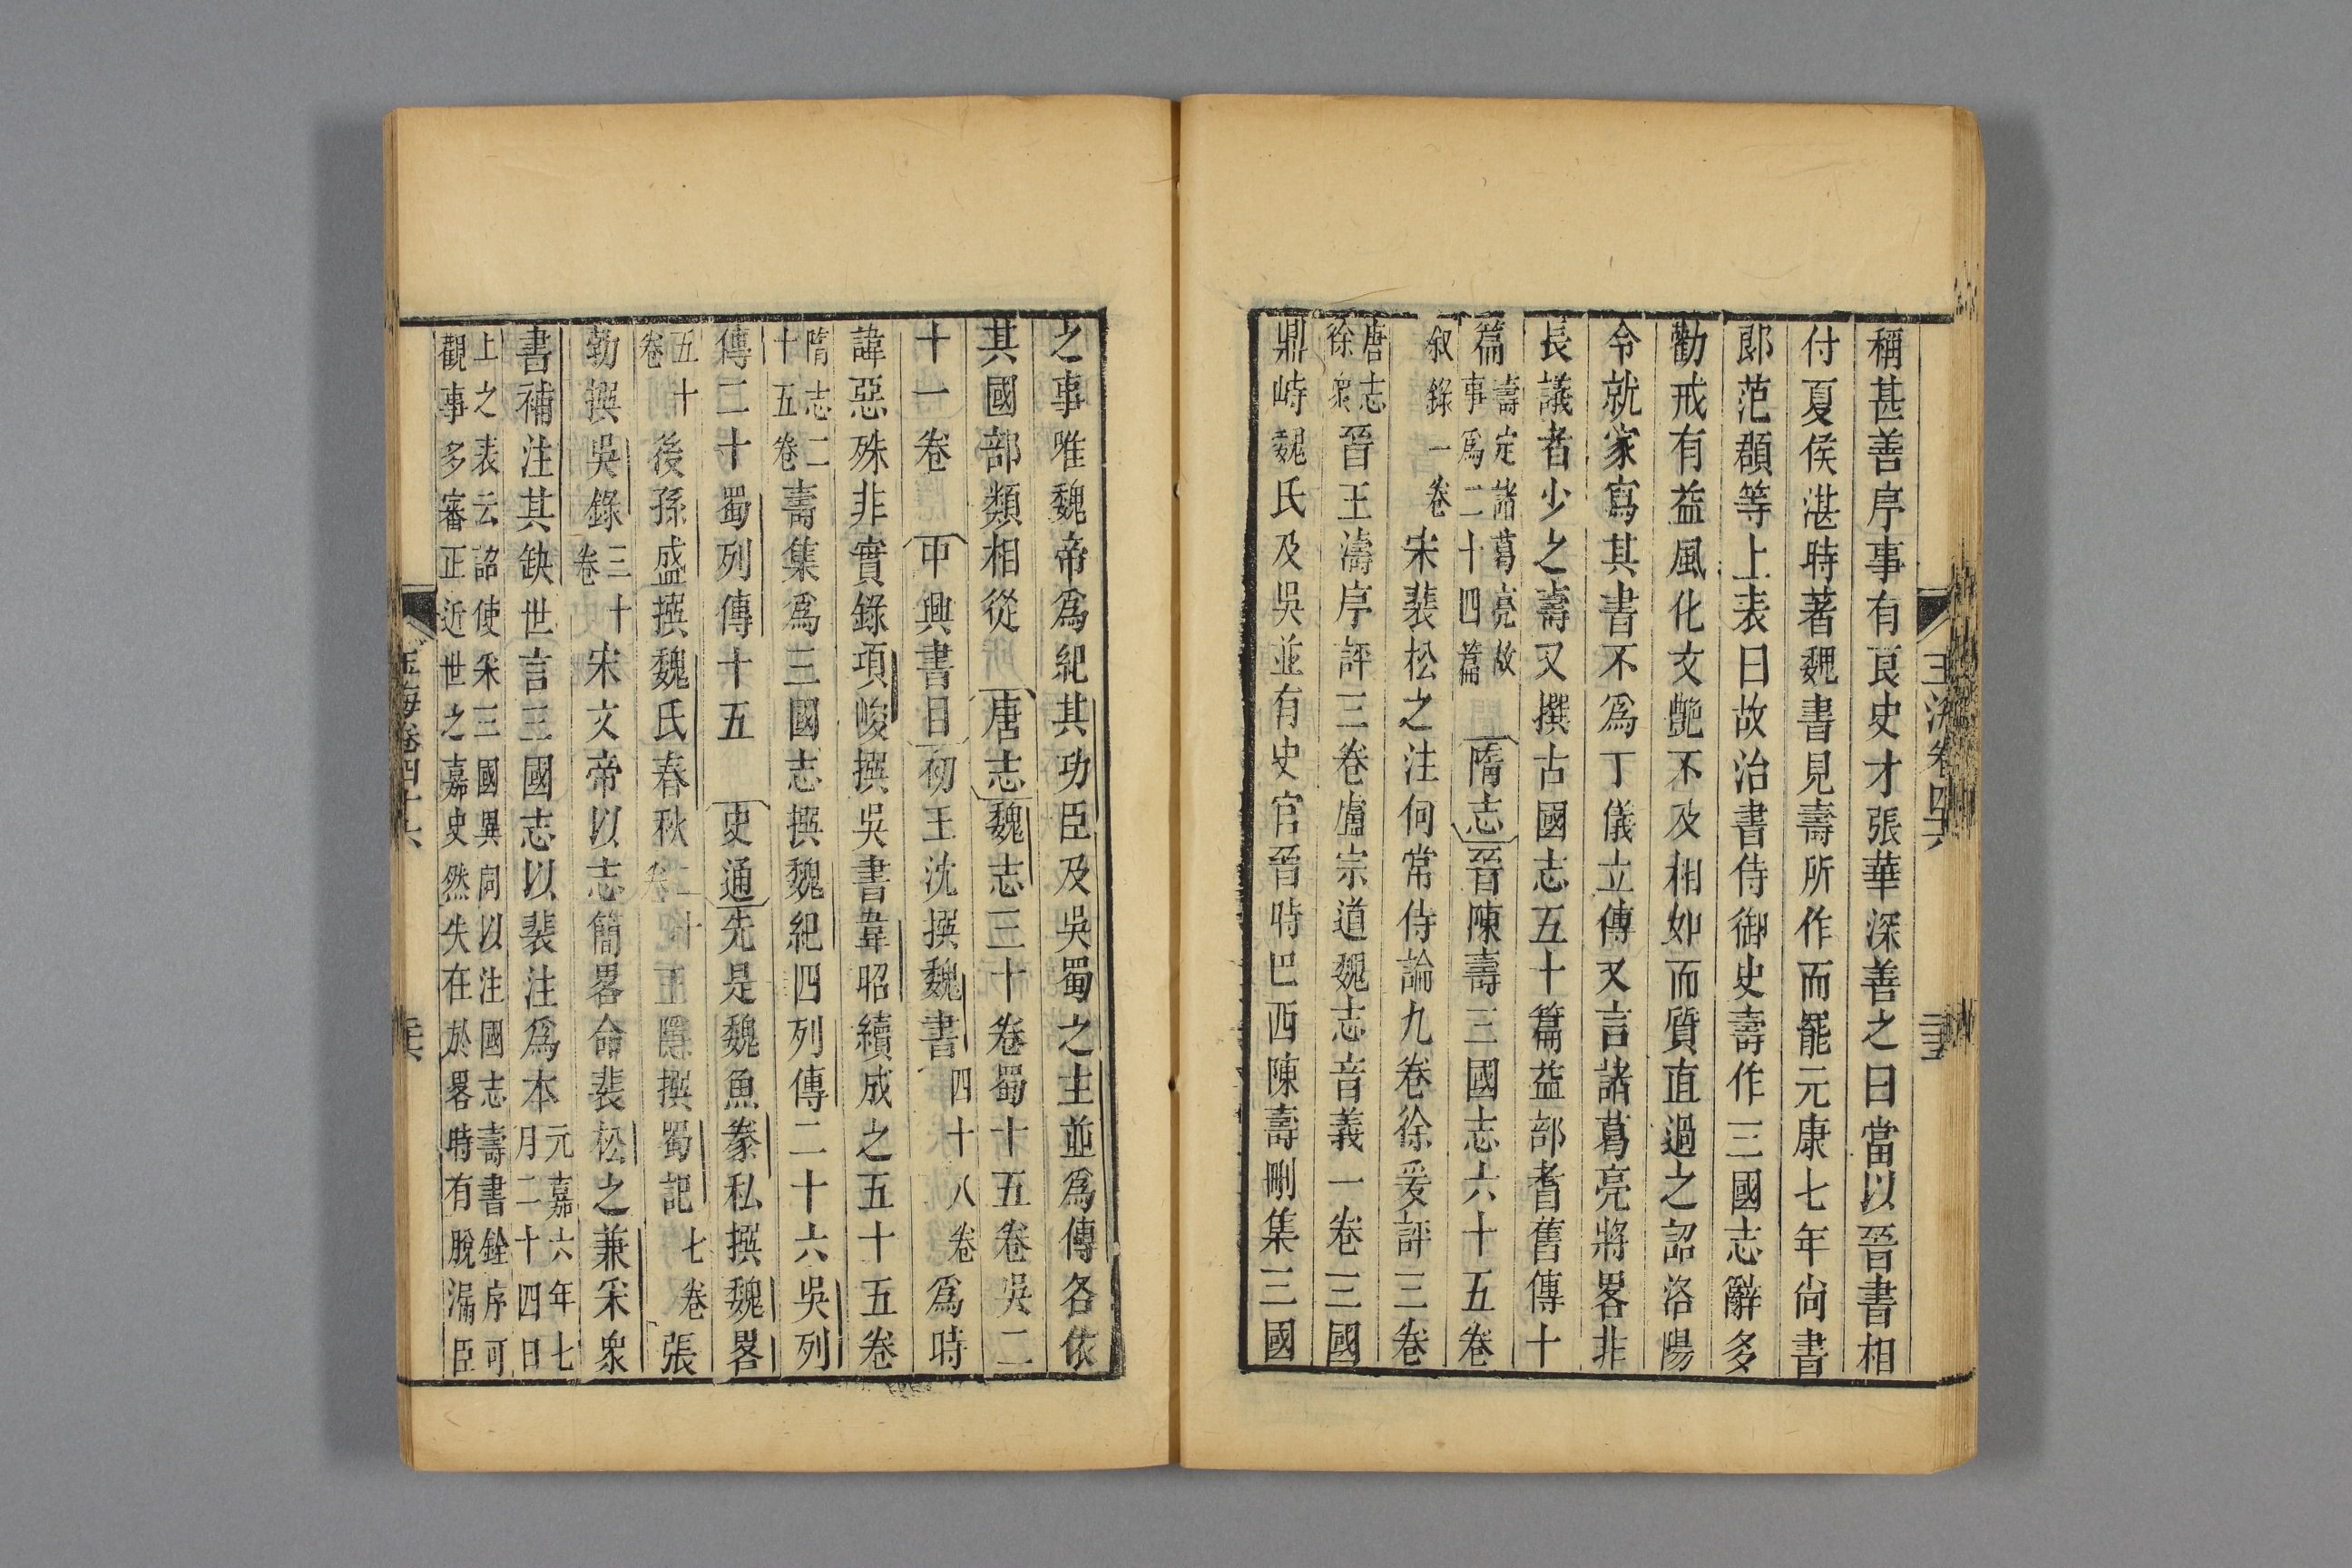 稱甚善序事有良史才張華深善之曰當以晉書相
付夏侯湛時著魏書見壽所作而罷元康七年尙書
郞范頵等上表曰故治書侍御史壽作三國志辭多
勸戒有益風化文艶不及相如而質直過之詔洛陽
令就家寫其書不爲丁儀立傳又言諸葛亮將畧非
長議者少之壽又撰古國志五十篇益部耆舊傳十
篇壽定諸葛亮故事爲二十四篇隋志晉陳壽三國志六十五卷
叙錄一卷宋裴松之注何常侍論九卷徐爰評三卷
唐志徐衆晉王濤序評三卷盧宗道魏志音義一卷三國
鼎峙魏氏及吳並有史官晉時巴西陳壽刪集三國
之事唯魏帝爲紀其功臣及吳蜀之主並爲傳各依
其國部類相從唐志魏志三十卷蜀十五卷吳二
十一卷中興書目初王沈撰魏書四十八卷爲時
諱惡殊非實錄項峻撰吳書韋昭續成之五十五卷
隋志二十五卷壽集爲三國志撰魏紀四列傳二十六吳列
傳二十蜀列傳十五史通先是魏魚豢私撰魏畧
五十卷後孫盛撰魏氏春秋二十卷王隱撰蜀記七卷張
勃撰吳錄三十卷宋文帝以志簡畧命裴松之兼采衆
書補注其缺世言三國志以裴注爲本元嘉六年七月二十四日
上之表云詔使采三國異同以注國志壽書銓序可觀事多審正近世之嘉史然失在於畧時有脫漏臣
玉海卷四十六